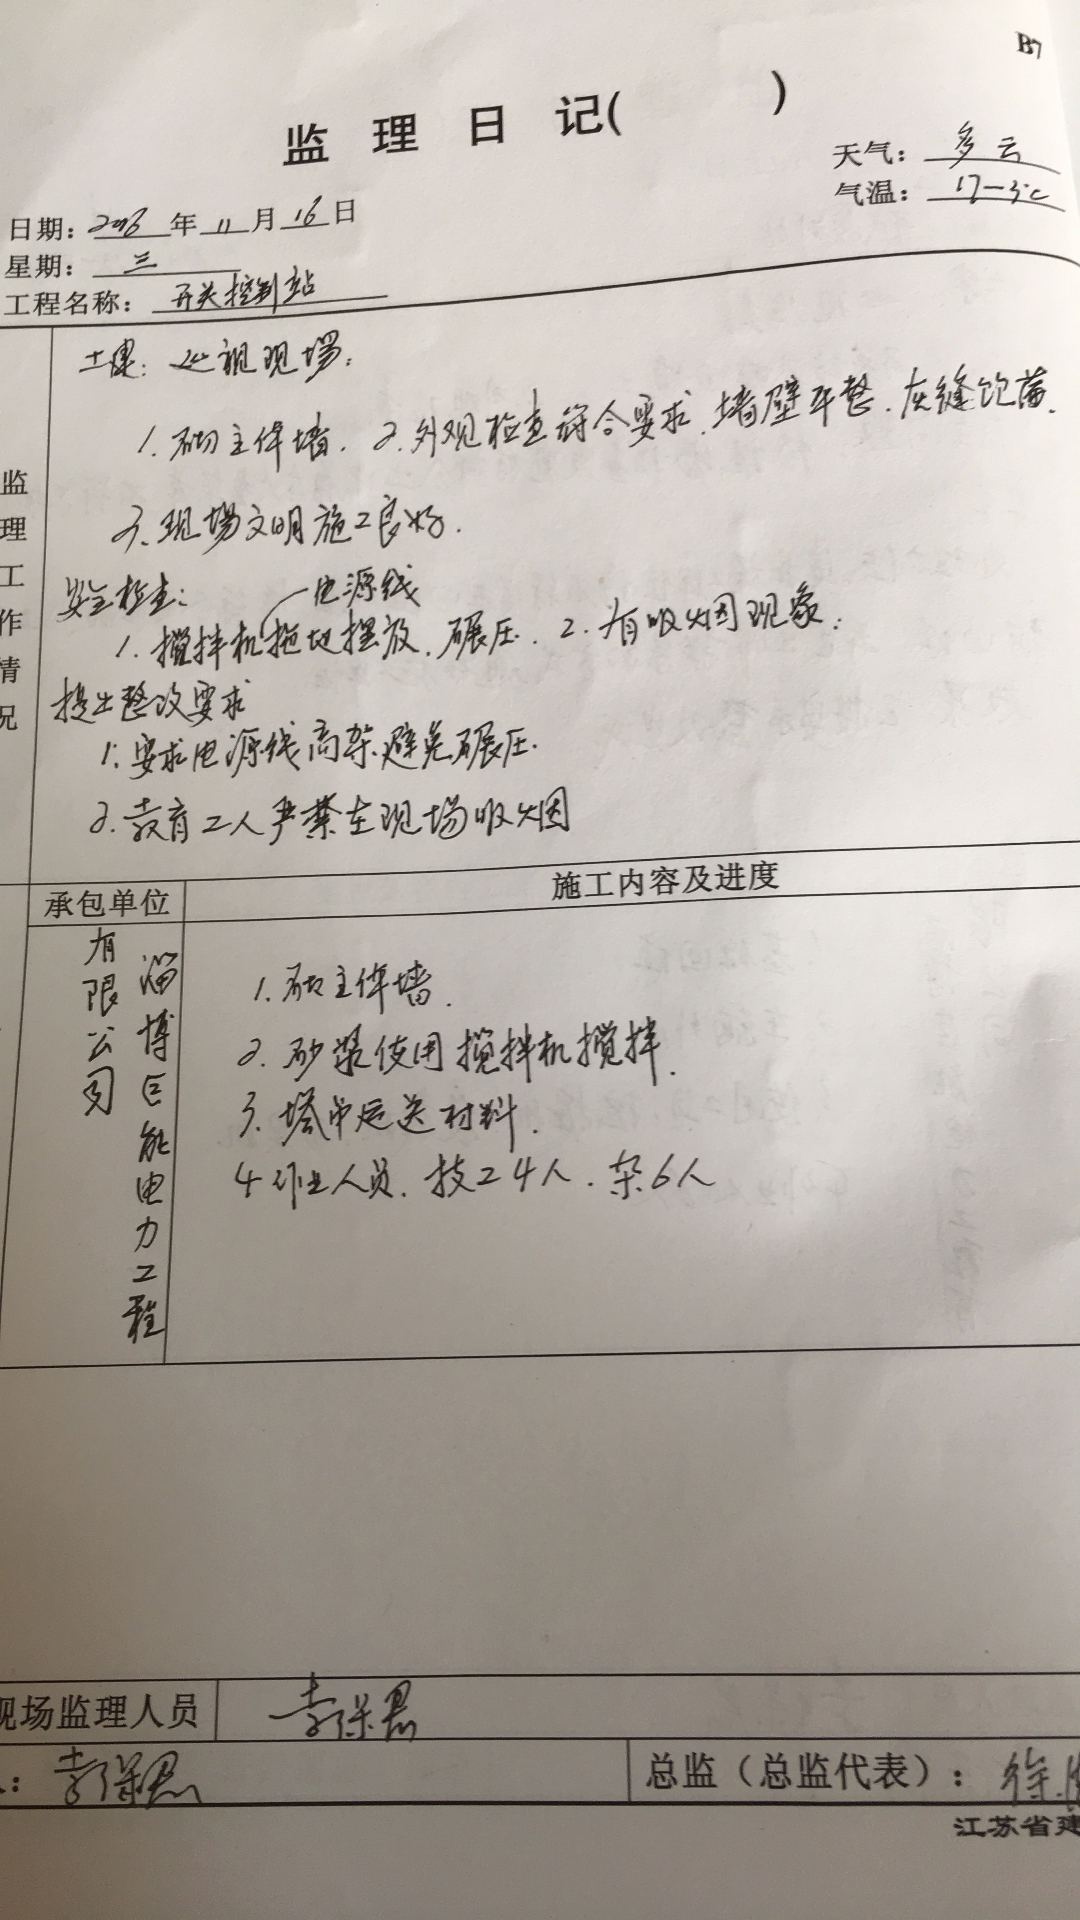 B7
监 理 日 记( )
天气: 多云
气温: 17—3℃
日期: 2016 年 11 月 16 日
星期: 三
工程名称: 开关控制站
监理工作情况
土建: 巡视现场:
1. 砌主体墙. 2. 外观检查符合要求, 墙壁平整. 灰缝饱满.
3. 现场文明施工良好.
安全检查:
电源线
1. 搅拌机拖地摆放. 碾压. 2. 有吸烟现象;
提出整改要求
1. 要求电源线高架避免碾压.
2. 教育工人严禁在现场吸烟
承包单位
施工内容及进度
淄博巨能电力工程
有限公司
1. 砌主体墙.
2. 砂浆使用搅拌机搅拌.
3. 塔吊运送材料.
4 作业人员. 技工4人. 杂6人
现场监理人员
总监（总监代表）: 徐
江苏省建